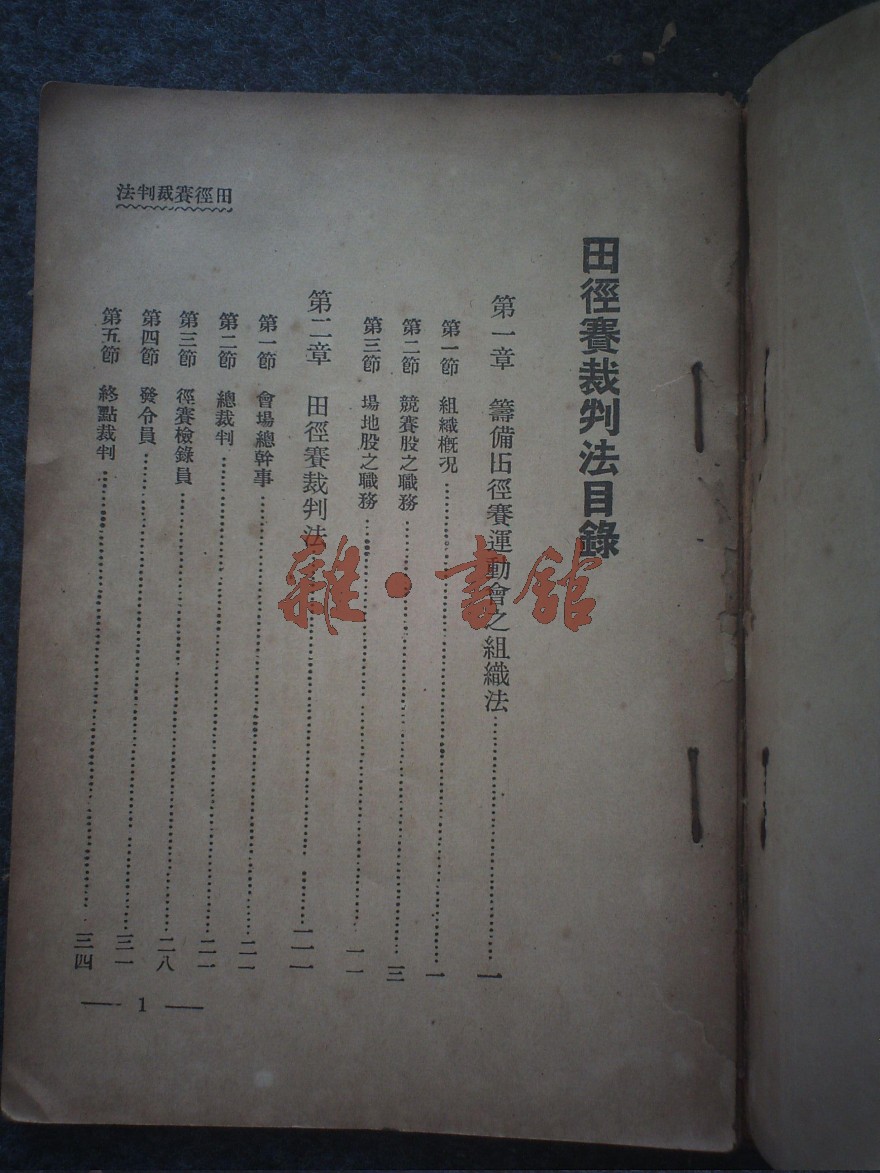 田徑賽裁判法
田徑賽裁判法目錄
第一章　籌備田徑賽運動會之組織法⋯⋯一
第一節　組織概况⋯⋯一
第二節　競賽股之職務⋯⋯三
第三節　場地股之職務⋯⋯一一
第二章　田徑賽裁判法⋯⋯二一
第一節　會場總幹事⋯⋯二一
第二節　總裁判⋯⋯二一
第三節　徑賽檢錄員⋯⋯二八
第四節　發令員⋯⋯三一
第五節　終點裁判⋯⋯三四
— 1 —
雜·書館